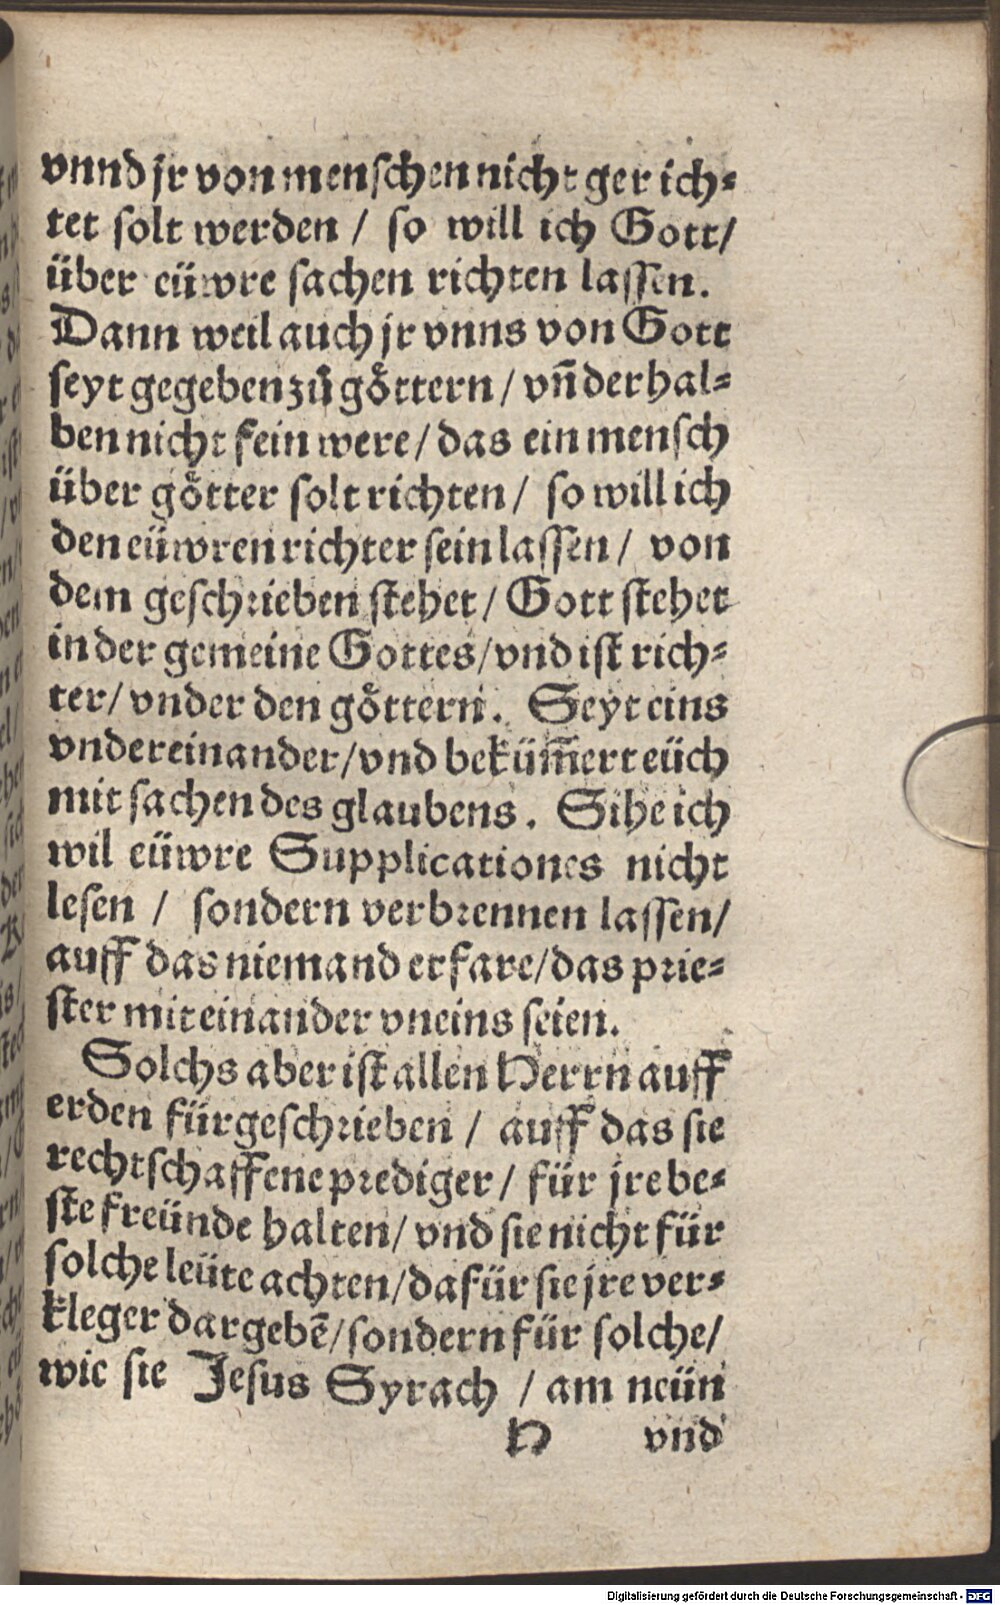 vnnd jr von menschen nicht gerich⸗
tet solt werden / so will ich Gott/
über eüwre sachen richten lassen.
Dann weil auch jr vnns von Gott
seyt gegeben zů goͤttern / vn̄ derhal⸗
ben nicht fein were / das ein mensch
über goͤtter solt richten / so will ich
den eüwren richter sein lassen / von
dem geschrieben stehet / Gott stehet
in der gemeine Gottes/vnd ist rich⸗
ter/ vnder den goͤttern. Seyt eins
vndereinander/vnd beküm̄ert eüch
mit sachen des glaubens. Sihe ich
wil eüwre Supplicationes nicht
lesen / sondern verbrennen lassen/
auff das niemand erfare/das prie⸗
ster miteinander vneins seien.
Solchs aber ist allen Herrn auff
erden fürgeschrieben / auff das sie
rechtschaffene prediger / für jre be⸗
ste freünde halten/ vnd sie nicht für
solche leüte achten/dafür sie jre ver⸗
kleger dargebē/sondern für solche/
wie sie Jesus Syrach / am neün
H vnd
Digitalisierung gefördert durch die Deutsche Forschungsgemeinschaft - DFG